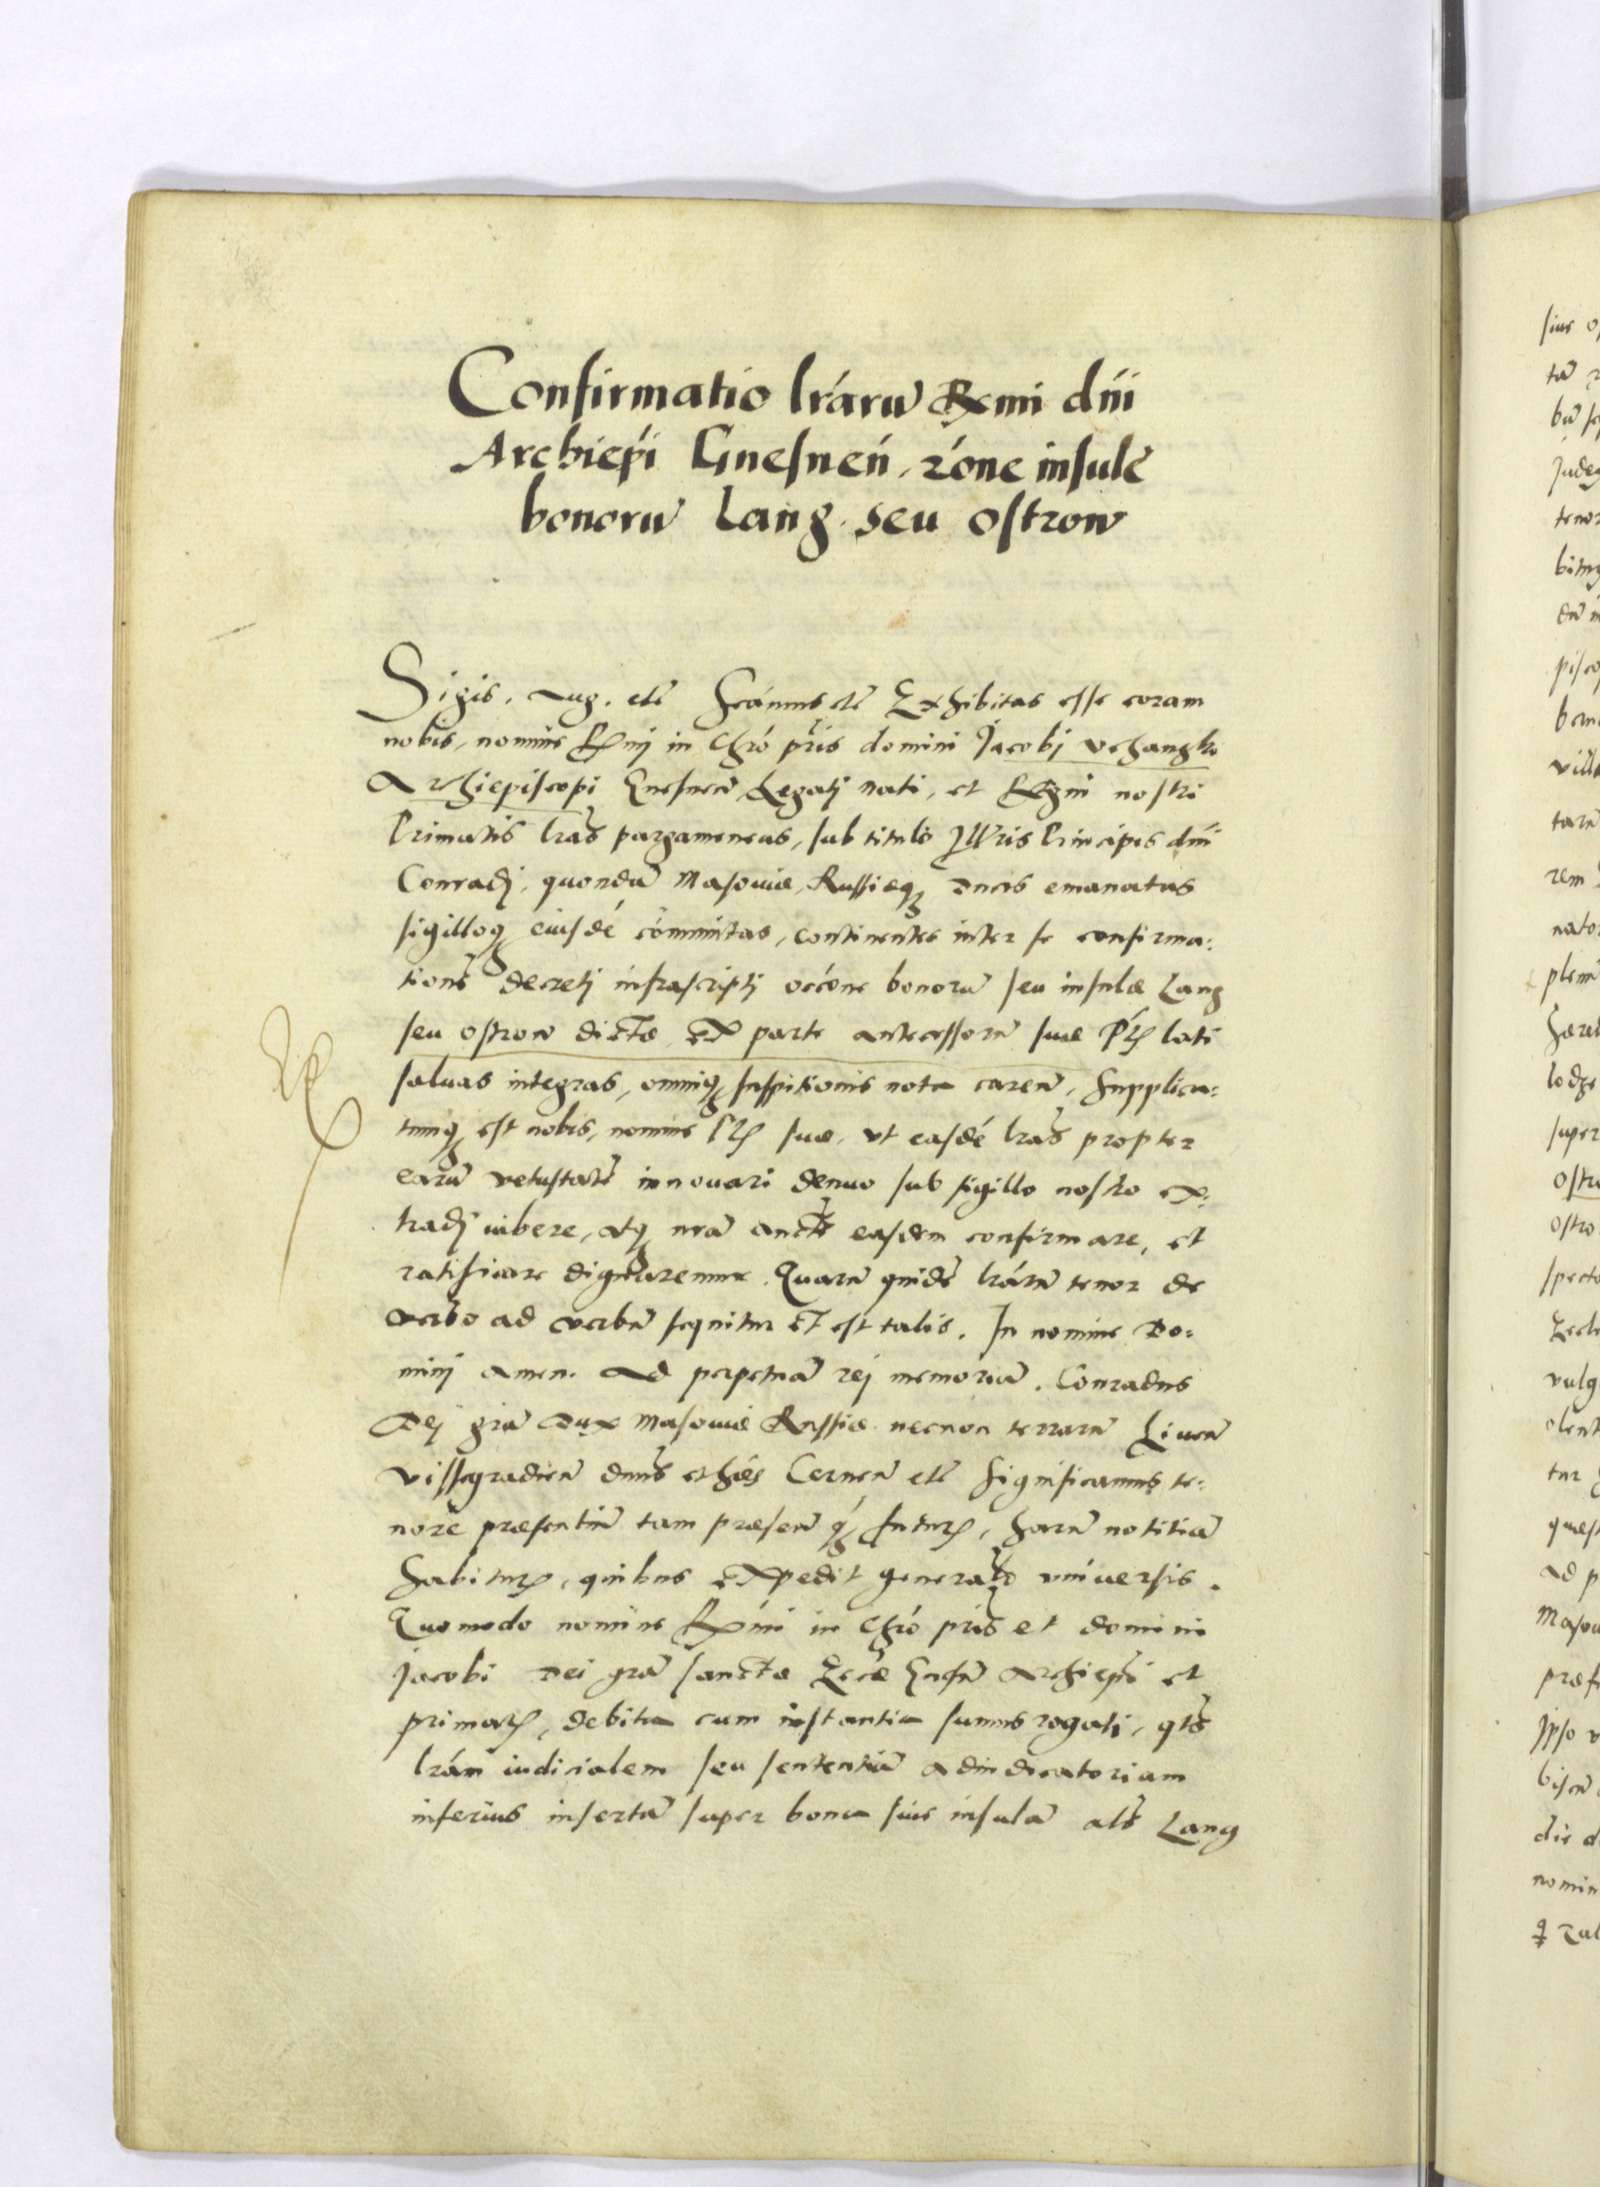 Confirmatio lrárũ Rxmi dńi
Archiepi Gnesneń, róne insule
bonorũ Lang seu ostrow
Sigis. Aug. etc̃ Exhibitas esse coram
nobis, nomine Rxmi in Chró pris domini Jacobi Vchangko
Archiepiscopi Gnesneñ, Legati nati, et Regni nostri
Primatis lras pargameneas, sub titulo Illris Principis dńi
Conradi, quondã Masoviæ, Russiæq ducis emanatas
sigilloq eiusdé communitas, continentes inter se confirma:
tionẽ decreti infrascripti occóne bonorũ seu insulæ Lang
seu ostrow dictæ ex parte antecessorũ suæ lati
saluas integras, omniq suspitionis nota careñ, Supplica:
tumq est nobis, nomine suæ, vt easdé lras propter
earũ vetustatẽ innovari denuo sub sigillo nostro ex:
tradi iubere, atq nrã auctẽ easdem confirmare, et
ratificare dignaremur. Quarũ quidẽ lrárũ tenor de
verbo ad verbũ sequitur et est talis. In nomine Do:
mini amen. Ad perpetuã rei memoriã. Conradus
Dei grã Dux Masoviæ Russiæ necnon terrarũ Liveñ
Vissegradieñ dnus et hæs Cerneñ etc̃ Significamus te:
nore præsentiũ tam præseñ q̃ futuris, harũ notitiã
habituris, quibus expedit generalr vniversis.
Quomodo nomine Rxmi in Chró pris et domini
Jacobi Dei grã sanctæ Eccæ Gnesñ Archiepi et
primatis, debita cum instantia sumus rogati, qts
lrám iudicialem seu sententiã adiudicatoriam
inferius insertã super bona sive insulã als Lang